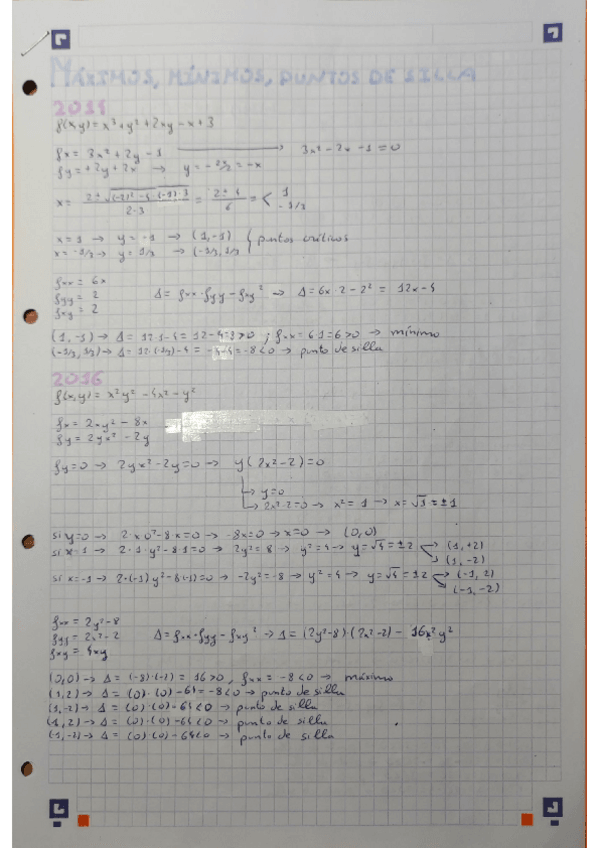 MÁXIMOS, MÍNIMOS, PUNTOS DE SILLA
2015
f(x,y) = x³+y²+2xy-x+3
fx = 3x²+2y-1 → 3x²-2x-1=0
fy = +2y+2x → y = -2x/2 = -x
x = 2±√(-2)²-4·(-1)·3 / 2·3 = 2±4 / 6 = < 1 -1/3
x=1 → y=-1 → (1,-1) puntos críticos
x=-1/3 → y=1/3 → (-1/3, 1/3)
fxx = 6x
fyy = 2 Δ = fxx·fyy-fxy² → Δ=6x·2-2² = 12x-4
fxy = 2
(1,-1) → Δ=12·1-4=12-4=8>0 ; fxx=6·1=6>0 → mínimo
(-1/3, 1/3) → Δ=12·(-1/3)-4 = -4-4=-8<0 → punto de silla
2016
f(x,y) = x²y²-4x²-y²
fx = 2xy²-8x
fy = 2yx²-2y
fy=0 → 2yx²-2y=0 → y(2x²-2)=0
→ y=0
→ 2x²-2=0 → x²=1 → x=√1=±1
si y=0 → 2x0²-8x=0 → -8x=0 → x=0 → (0,0)
si x=1 → 2·1·y²-8·1=0 → 2y²=8 → y²=4 → y=√4=±2 (1,+2)
(1,-2)
si x=-1 → 2·(-1)y²-8(-1)=0 → -2y²=-8 → y²=4 → y=√4=±2 (-1,2)
(-1,-2)
fxx = 2y²-8
fyy = 2x²-2 Δ=fxx·fyy-fxy² → Δ=(2y²-8)·(2x²-2)-16x²y²
fxy = 4xy
(0,0) → Δ=(-8)·(-2)=16>0, fxx=-8<0 → máximo
(1,2) → Δ=(0)·(0)-64=-8<0 → punto de silla
(1,-2) → Δ=(0)·(0)-64<0 → punto de silla
(-1,2) → Δ=(0)·(0)-64<0 → punto de silla
(-1,-2) → Δ=(0)·(0)-64<0 → punto de silla